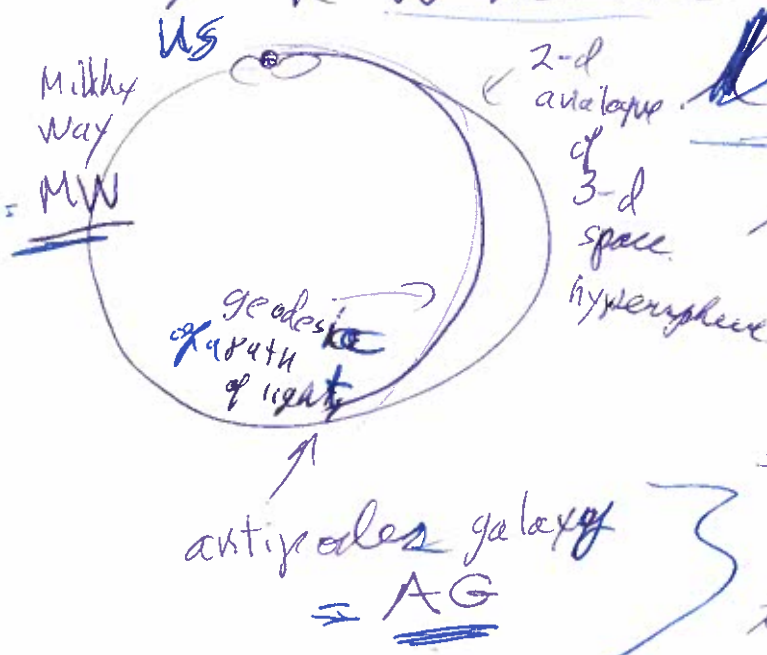 US
Milky
Way
= MW
2-d
analogue
of
3-d
space
hypersphere
geodesic
of path
of light
antipodes galaxy
= AG